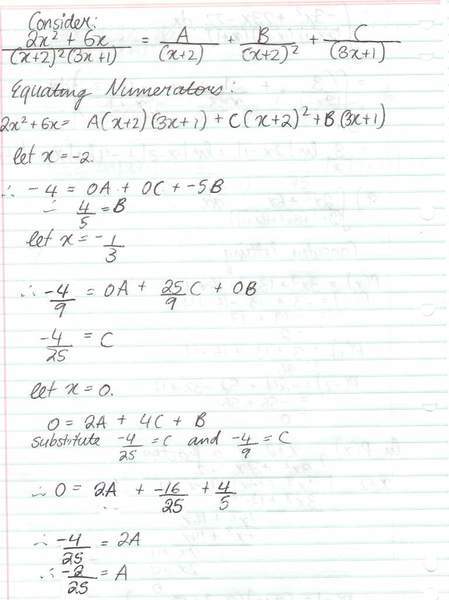 Consider:
2x² + 6x / (x+2)²(3x+1) = A / (x+2) + B / (x+2)² + C / (3x+1)
Equating Numerators:
2x²+6x = A(x+2)(3x+1) + C(x+2)² + B(3x+1)
let x = -2.
∴ -4 = 0A + 0C + -5B
∴ 4/5 = B
let x = -1/3
∴ -4/9 = 0A + 25/9 C + 0B
-4/25 = C
let x = 0.
0 = 2A + 4C + B
substitute -4/25 = C and -4/9 = C
∴ 0 = 2A + -16/25 + 4/5
∴ -4/25 = 2A
∴ -2/25 = A